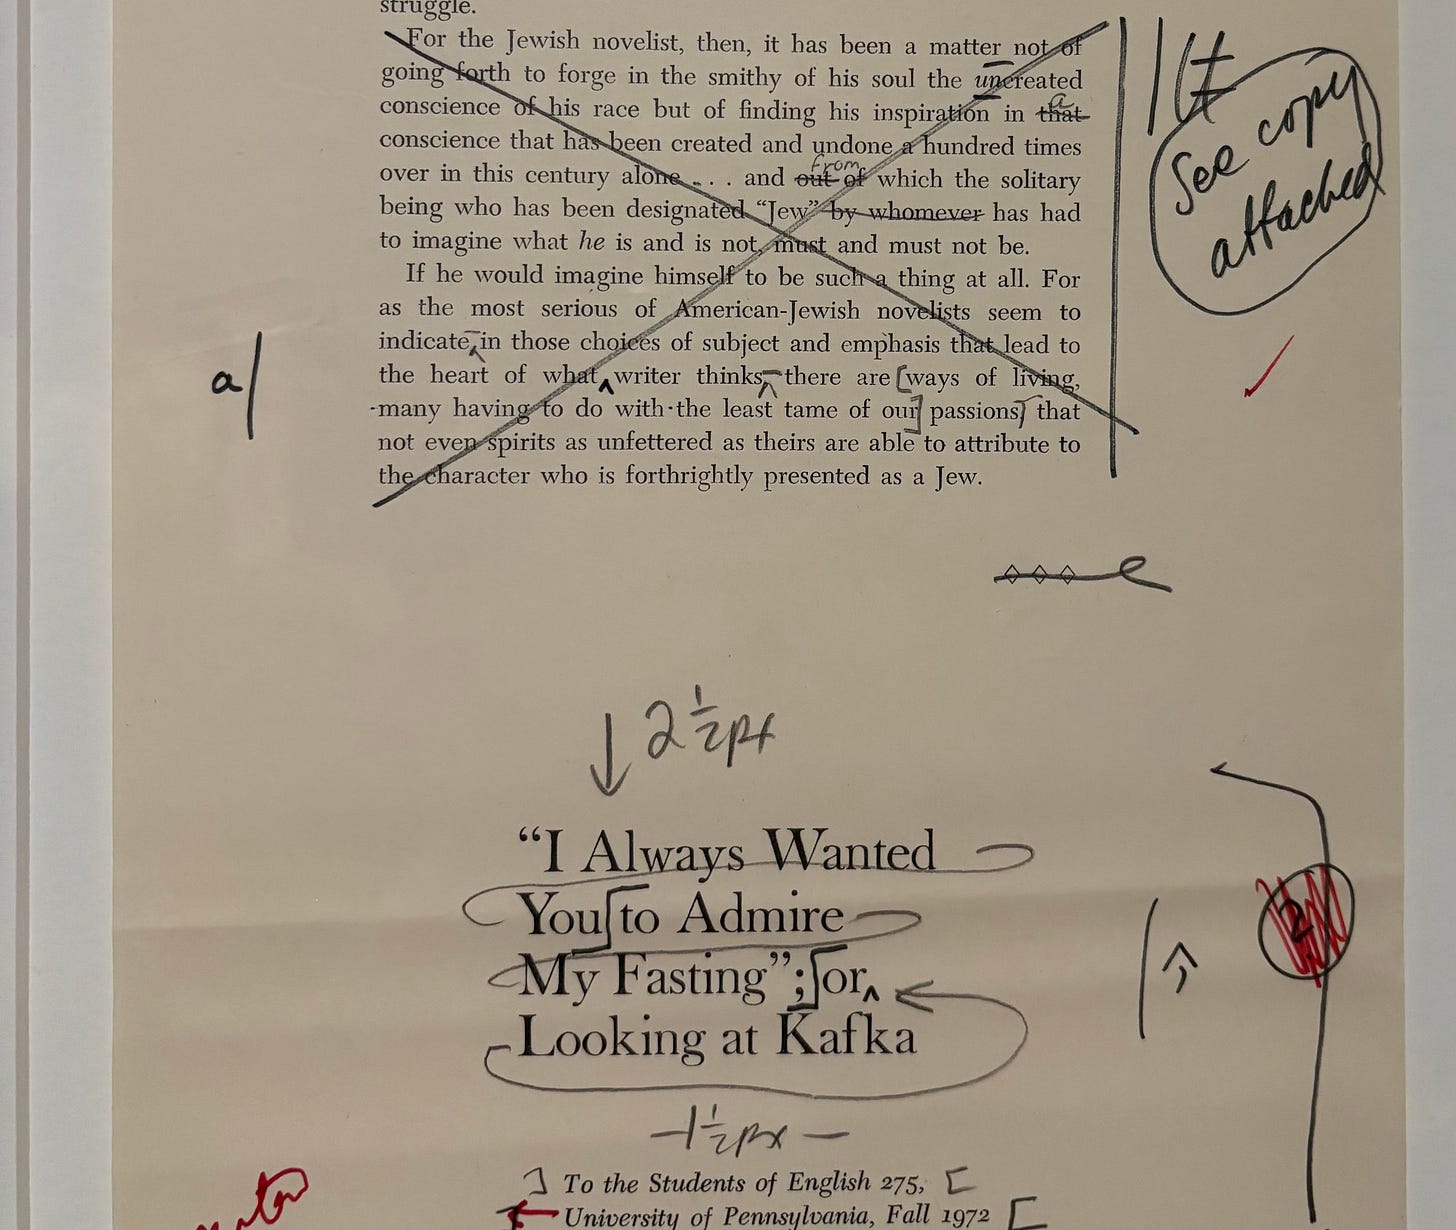 struggle.
For the Jewish novelist, then, it has been a matter not of
going forth to forge in the smithy of his soul the uncreated
conscience of his race but of finding his inspiration in that a
conscience that has been created and undone a hundred times
over in this century alone . . . and out of from which the solitary
being who has been designated “Jew” by whomever has had
to imagine what he is and is not, must and must not be.
If he would imagine himself to be such a thing at all. For
as the most serious of American-Jewish novelists seem to
indicate, in those choices of subject and emphasis that lead to
the heart of what writer thinks, there are ways of living,
many having to do with the least tame of our passions, that
not even spirits as unfettered as theirs are able to attribute to
the character who is forthrightly presented as a Jew.
See copy
attached
a/
2 1/2 px
“I Always Wanted
You to Admire
My Fasting”; or,
Looking at Kafka
2
1 1/2 px
To the Students of English 275,
University of Pennsylvania, Fall 1972